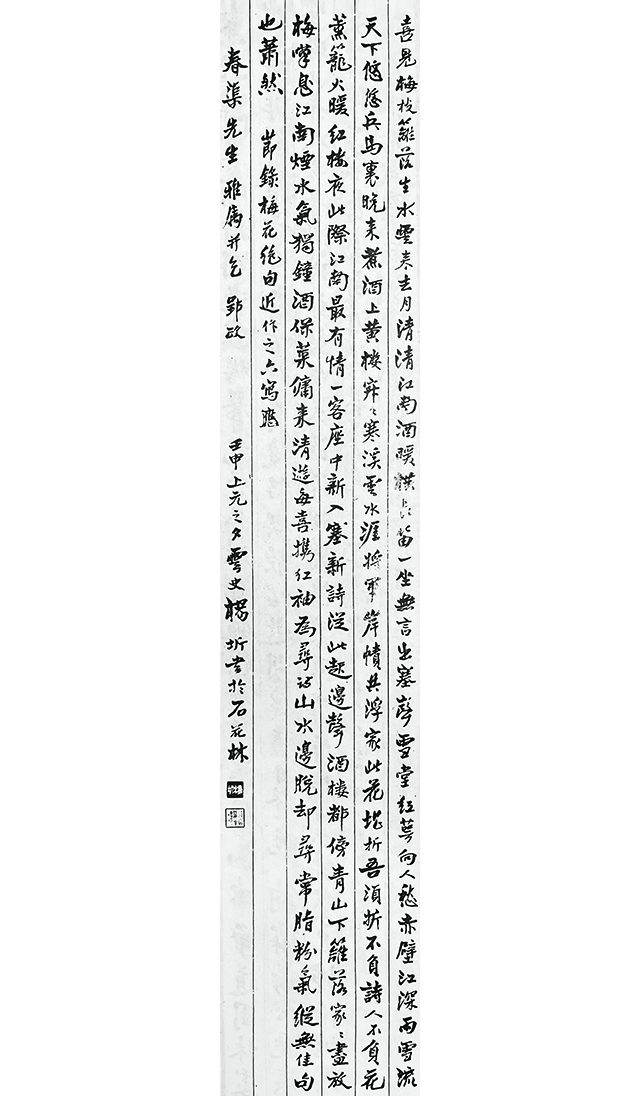 喜見梅枝籬落生水雲春去月清清江南酒暖橫長笛一坐無言出塞聲雪堂紅萼向人愁赤壁江深雨雪流
天下悠悠兵馬裏晚來煮酒上黃樓寂〻寒溪雲水涯將軍岸幘共浮家此花堪折吾須折不負詩人不負花
薰籠火暖紅樓夜此際江南最有情一客座中新入塞新詩從此起邊聲酒樓都傍青山下籬落家〻盡放
梅嘆息江南煙水氣獨鐘酒保菜傭來清遊每喜攜紅袖為尋山水邊脫却尋常脂粉氣縱無佳句
也蕭然 節錄梅花絕句近作之六寫應
春渠先生雅屬并乞郢政 壬申上元之夕雲史楊圻書於石花林